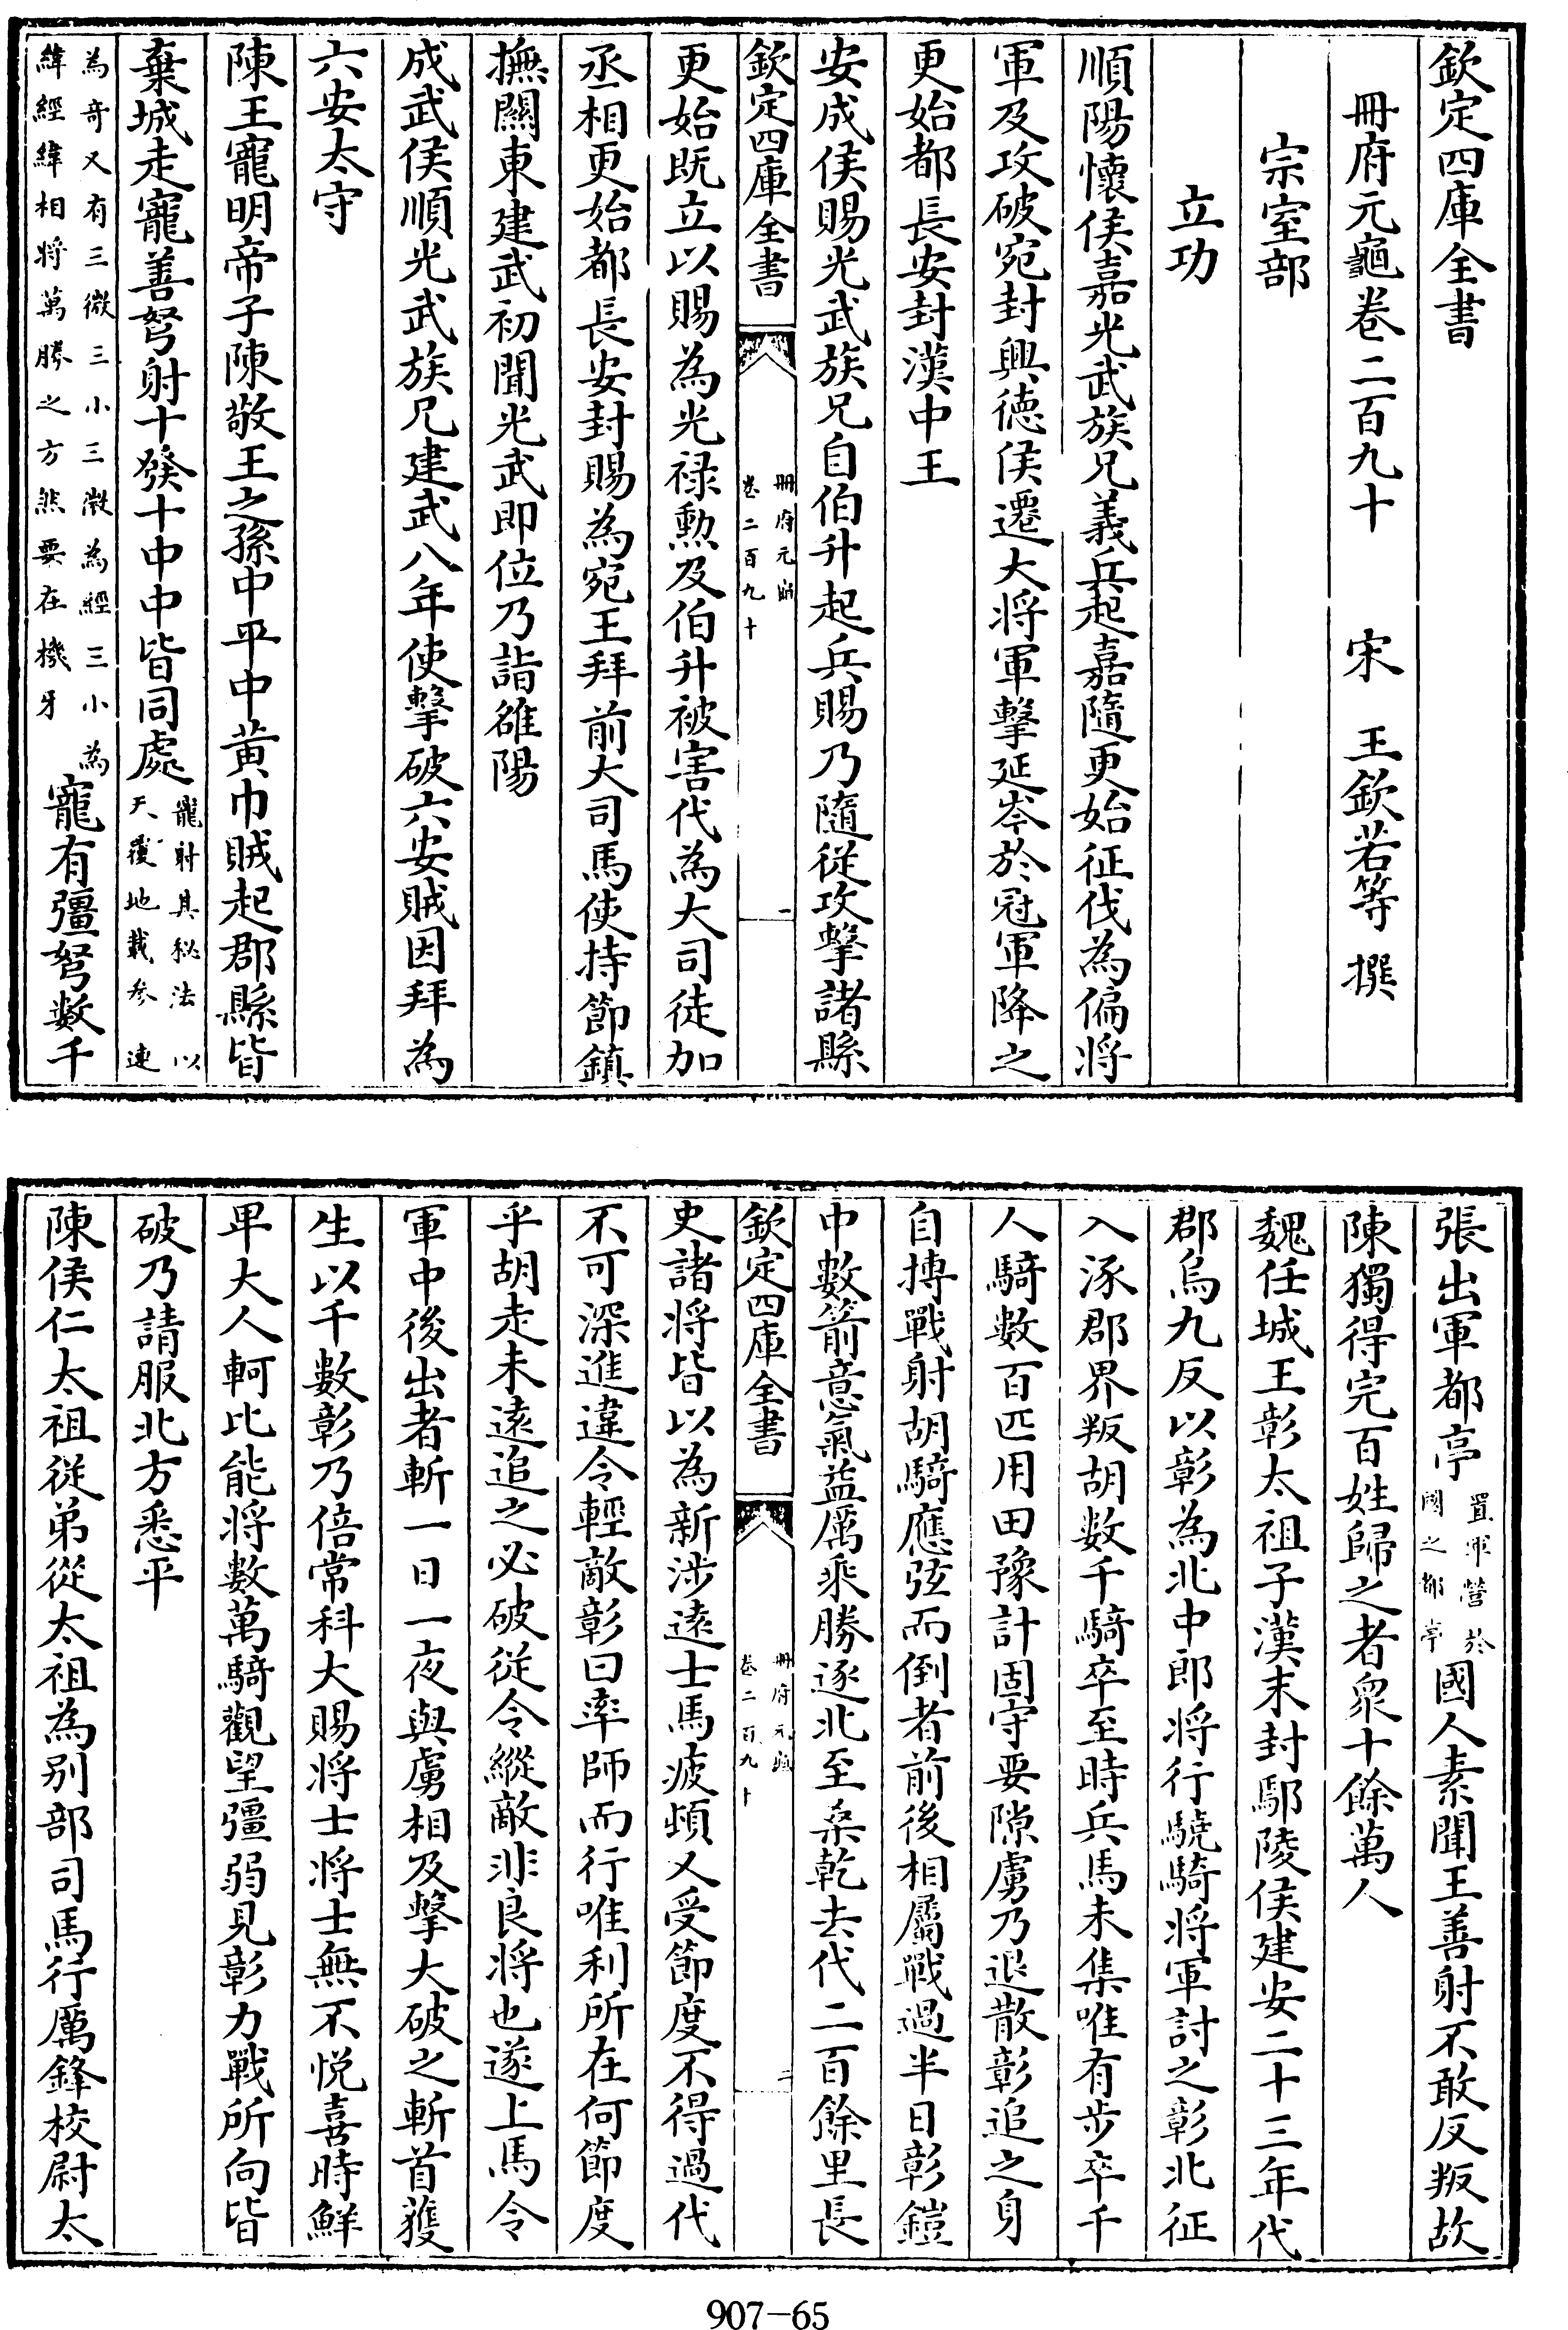 欽定四庫全書
冊府元龜卷二百九十　宋　王欽若等　撰
宗室部
立功
順陽懷侯嘉光武族兄義兵起嘉隨更始征伐為偏將
軍及攻破宛封興德侯遷大將軍擊延岑於冠軍降之
更始都長安封漢中王
安成侯賜光武族兄自伯升起兵賜乃隨從攻擊諸縣
欽定四庫全書　冊府元龜卷二百九十　一
更始既立以賜為光祿勲及伯升被害代為大司徒加
丞相更始都長安封賜為宛王拜前大司馬使持節鎮
撫關東建武初聞光武即位乃詣雒陽
成武侯順光武族兄建武八年使擊破六安賊因拜為
六安太守
陳王寵明帝子陳敬王之孫中平中黄巾賊起郡縣皆
棄城走寵善弩射十發十中中皆同處寵射其秘法以天覆地載參連
為奇又有三微三小三微為經三小為緯經緯相將萬勝之方然要在機牙寵有彊弩數千
張出軍都亭置軍營於國之都亭國人素聞王善射不敢反叛故
陳獨得完百姓歸之者衆十餘萬人
魏任城王彰太祖子漢末封鄢陵侯建安二十三年代
郡烏九反以彰為北中郎將行驍騎將軍討之彰北征
入涿郡界叛胡數千騎卒至時兵馬未集唯有步卒千
人騎數百匹用田豫計固守要隙虜乃退散彰追之身
自搏戰射胡騎應弦而倒者前後相屬戰過半日彰鎧
中數箭意氣益厲乘勝逐北至桑乾去代二百餘里長
欽定四庫全書　冊府元龜卷二百九十　二
史諸將皆以為新涉遠士馬疲頓又受節度不得過代
不可深進違令輕敵彰曰率師而行唯利所在何節度
乎胡走未遠追之必破從令縱敵非良將也遂上馬令
軍中後出者斬一日一夜與虜相及擊大破之斬首獲
生以千數彰乃倍常科大賜將士將士無不悦喜時鮮
卑大人軻比能將數萬騎觀望彊弱見彰力戰所向皆
破乃請服北方悉平
陳侯仁太祖從弟從太祖為别部司馬行厲鋒校尉太
907-65